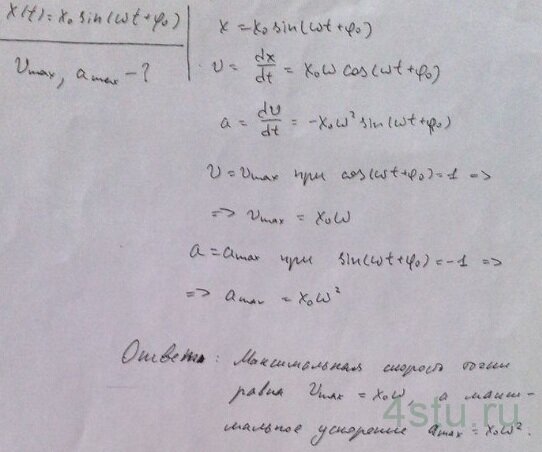 x(t)=x₀ sin(ωt+φ₀)
υmax, amax - ?
x = x₀ sin(ωt+φ₀)
υ = dx/dt = x₀ω cos(ωt+φ₀)
a = dυ/dt = -x₀ω² sin(ωt+φ₀)
υ = υmax при cos(ωt+φ₀)=1 =>
=> υmax = x₀ω
a = amax при sin(ωt+φ₀)=-1 =>
=> amax = x₀ω²
Ответ: Максимальная скорость точки
равна υmax = x₀ω, а макси-
мальное ускорение amax = x₀ω².
4stu.ru